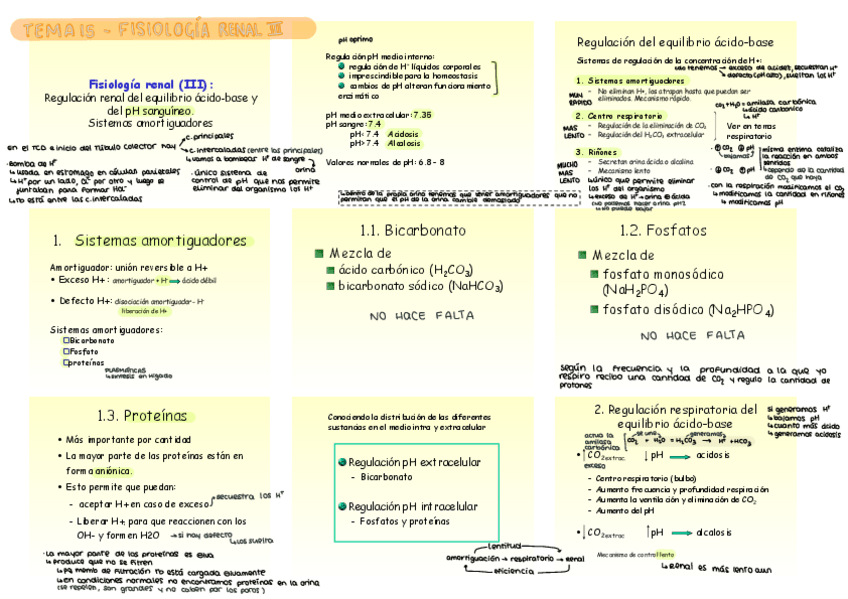 TEMA 15 - FISIOLOGÍA RENAL III
Fisiología renal (III):
Regulación renal del equilibrio ácido-base y
del pH sanguíneo.
Sistemas amortiguadores
c. principales
en el TCD e inicio del túbulo colector hay
c. intercaladas (entre las principales)
vamos a bombear H+ de sangre
orina
· Bomba de H+
usada en estómago en células parietales
H+ por un lado, Cl- por otro y luego se
juntaban para formar HCl
está entre las c. intercaladas
· único sistema de
control de pH que nos permite
eliminar del organismo los H+
pH óptimo
Regulación pH medio interno:
regulación de H+ líquidos corporales
imprescindible para la homeostasis
cambios de pH alteran funcionamiento
enzimático
pH medio extracelular: 7.35
pH sangre: 7.4
pH< 7.4 Acidosis
pH> 7.4 Alcalosis
Valores normales de pH: 6.8 - 8
dentro de la propia orina tenemos que tener amortiguadores que no
permitirán que el pH de la orina cambie demasiado
Regulación del equilibrio ácido-base
Sistemas de regulación de la concentración de H+:
exceso de acidez, secuestran H+
defecto (pH alto), sueltan los H+
1. Sistemas amortiguadores
MUY
RÁPIDO
- No eliminan H+, los atrapan hasta que puedan ser
eliminados. Mecanismo rápido.
2. Centro respiratorio
MAS
LENTO
- Regulación de la eliminación de CO2
- Regulación del H2CO3 extracelular
CO2+H2O = anhidrasa carbónica
ácido carbónico
H+
Ver en temas
respiratorio
3. Riñones
MUCHO
MAS
LENTO
- Secretan orina ácida o alcalina
- Mecanismo lento
único que permite eliminar
los H+ del organismo
exceso de H+ → orina ácida
misma enzima cataliza
la reacción en ambos
sentidos
depende de la cantidad
de CO2 que haya
· con la respiración modificamos el CO2
modificamos la cantidad en riñones
modificamos pH
1. Sistemas amortiguadores
Amortiguador: unión reversible a H+
• Exceso H+: amortiguador + H+ → ácido débil
• Defecto H+: disociación amortiguador - H+
liberación de H+
Sistemas amortiguadores:
Bicarbonato
Fosfato
proteínas
PLASMÁTICAS
síntesis en hígado
1.1. Bicarbonato
Mezcla de
ácido carbónico (H2CO3)
bicarbonato sódico (NaHCO3)
NO HACE FALTA
1.2. Fosfatos
Mezcla de
fosfato monosódico
(NaH2PO4)
fosfato disódico (Na2HPO4)
NO HACE FALTA
según la frecuencia y la profundidad a la que yo
respiro recibo una cantidad de CO2 y regulo la cantidad de
protones
1.3. Proteínas
• Más importante por cantidad
• La mayor parte de las proteínas están en
forma aniónica.
• Esto permite que puedan:
- aceptar H+ en caso de exceso
secuestra los H+
- Liberar H+, para que reaccionen con los
OH- y formen H2O
→ si hay defecto
los suelta
· La mayor parte de las proteínas es
produce que no se filtren
la memb de filtración está cargada
en condiciones normales no encontramos proteínas en la orina
(se repelen, son grandes y no caben por los poros)
Conociendo la distribución de las diferentes
sustancias en el medio intra y extracelular
Regulación pH extracelular
- Bicarbonato
Regulación pH intracelular
- Fosfatos y proteínas
lentitud
amortiguación → respiratorio → renal
eficiencia
2. Regulación respiratoria del
equilibrio ácido-base
si generamos H+
bajamos pH
cuanto más ácido
generamos acidosis
actúa la
carbónica
se une
generamos
CO2 + H2O = H2CO3 → H+ + HCO3
• ↑CO2extrac. ↓pH → acidosis
exceso
- Centro respiratorio (bulbo)
- Aumento frecuencia y profundidad respiración
- Aumento la ventilación y eliminación de CO2
- Aumento del pH
• ↓CO2extrac ↑pH → alcalosis
Mecanismo de control lento
Renal es más lento aun